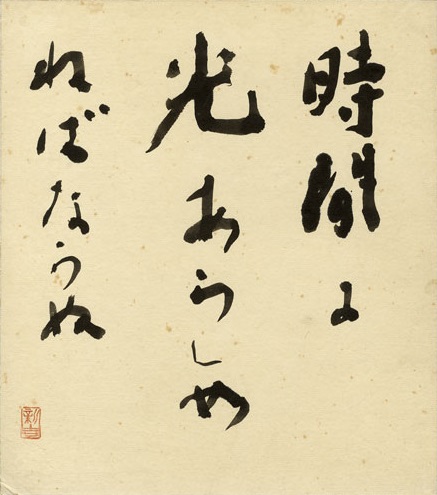 時間に
光あらしめ
ねばならぬ